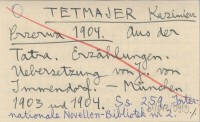 TETMAJER Kazimierz
Przerwa 1904. Aus der
Tatra. Erzählungen.
Uebersetzung von J. von
Immendorf. – München
1903 und 1904. Ss 259. Inter-
nationale Novellen-Bibliotek nr 2.